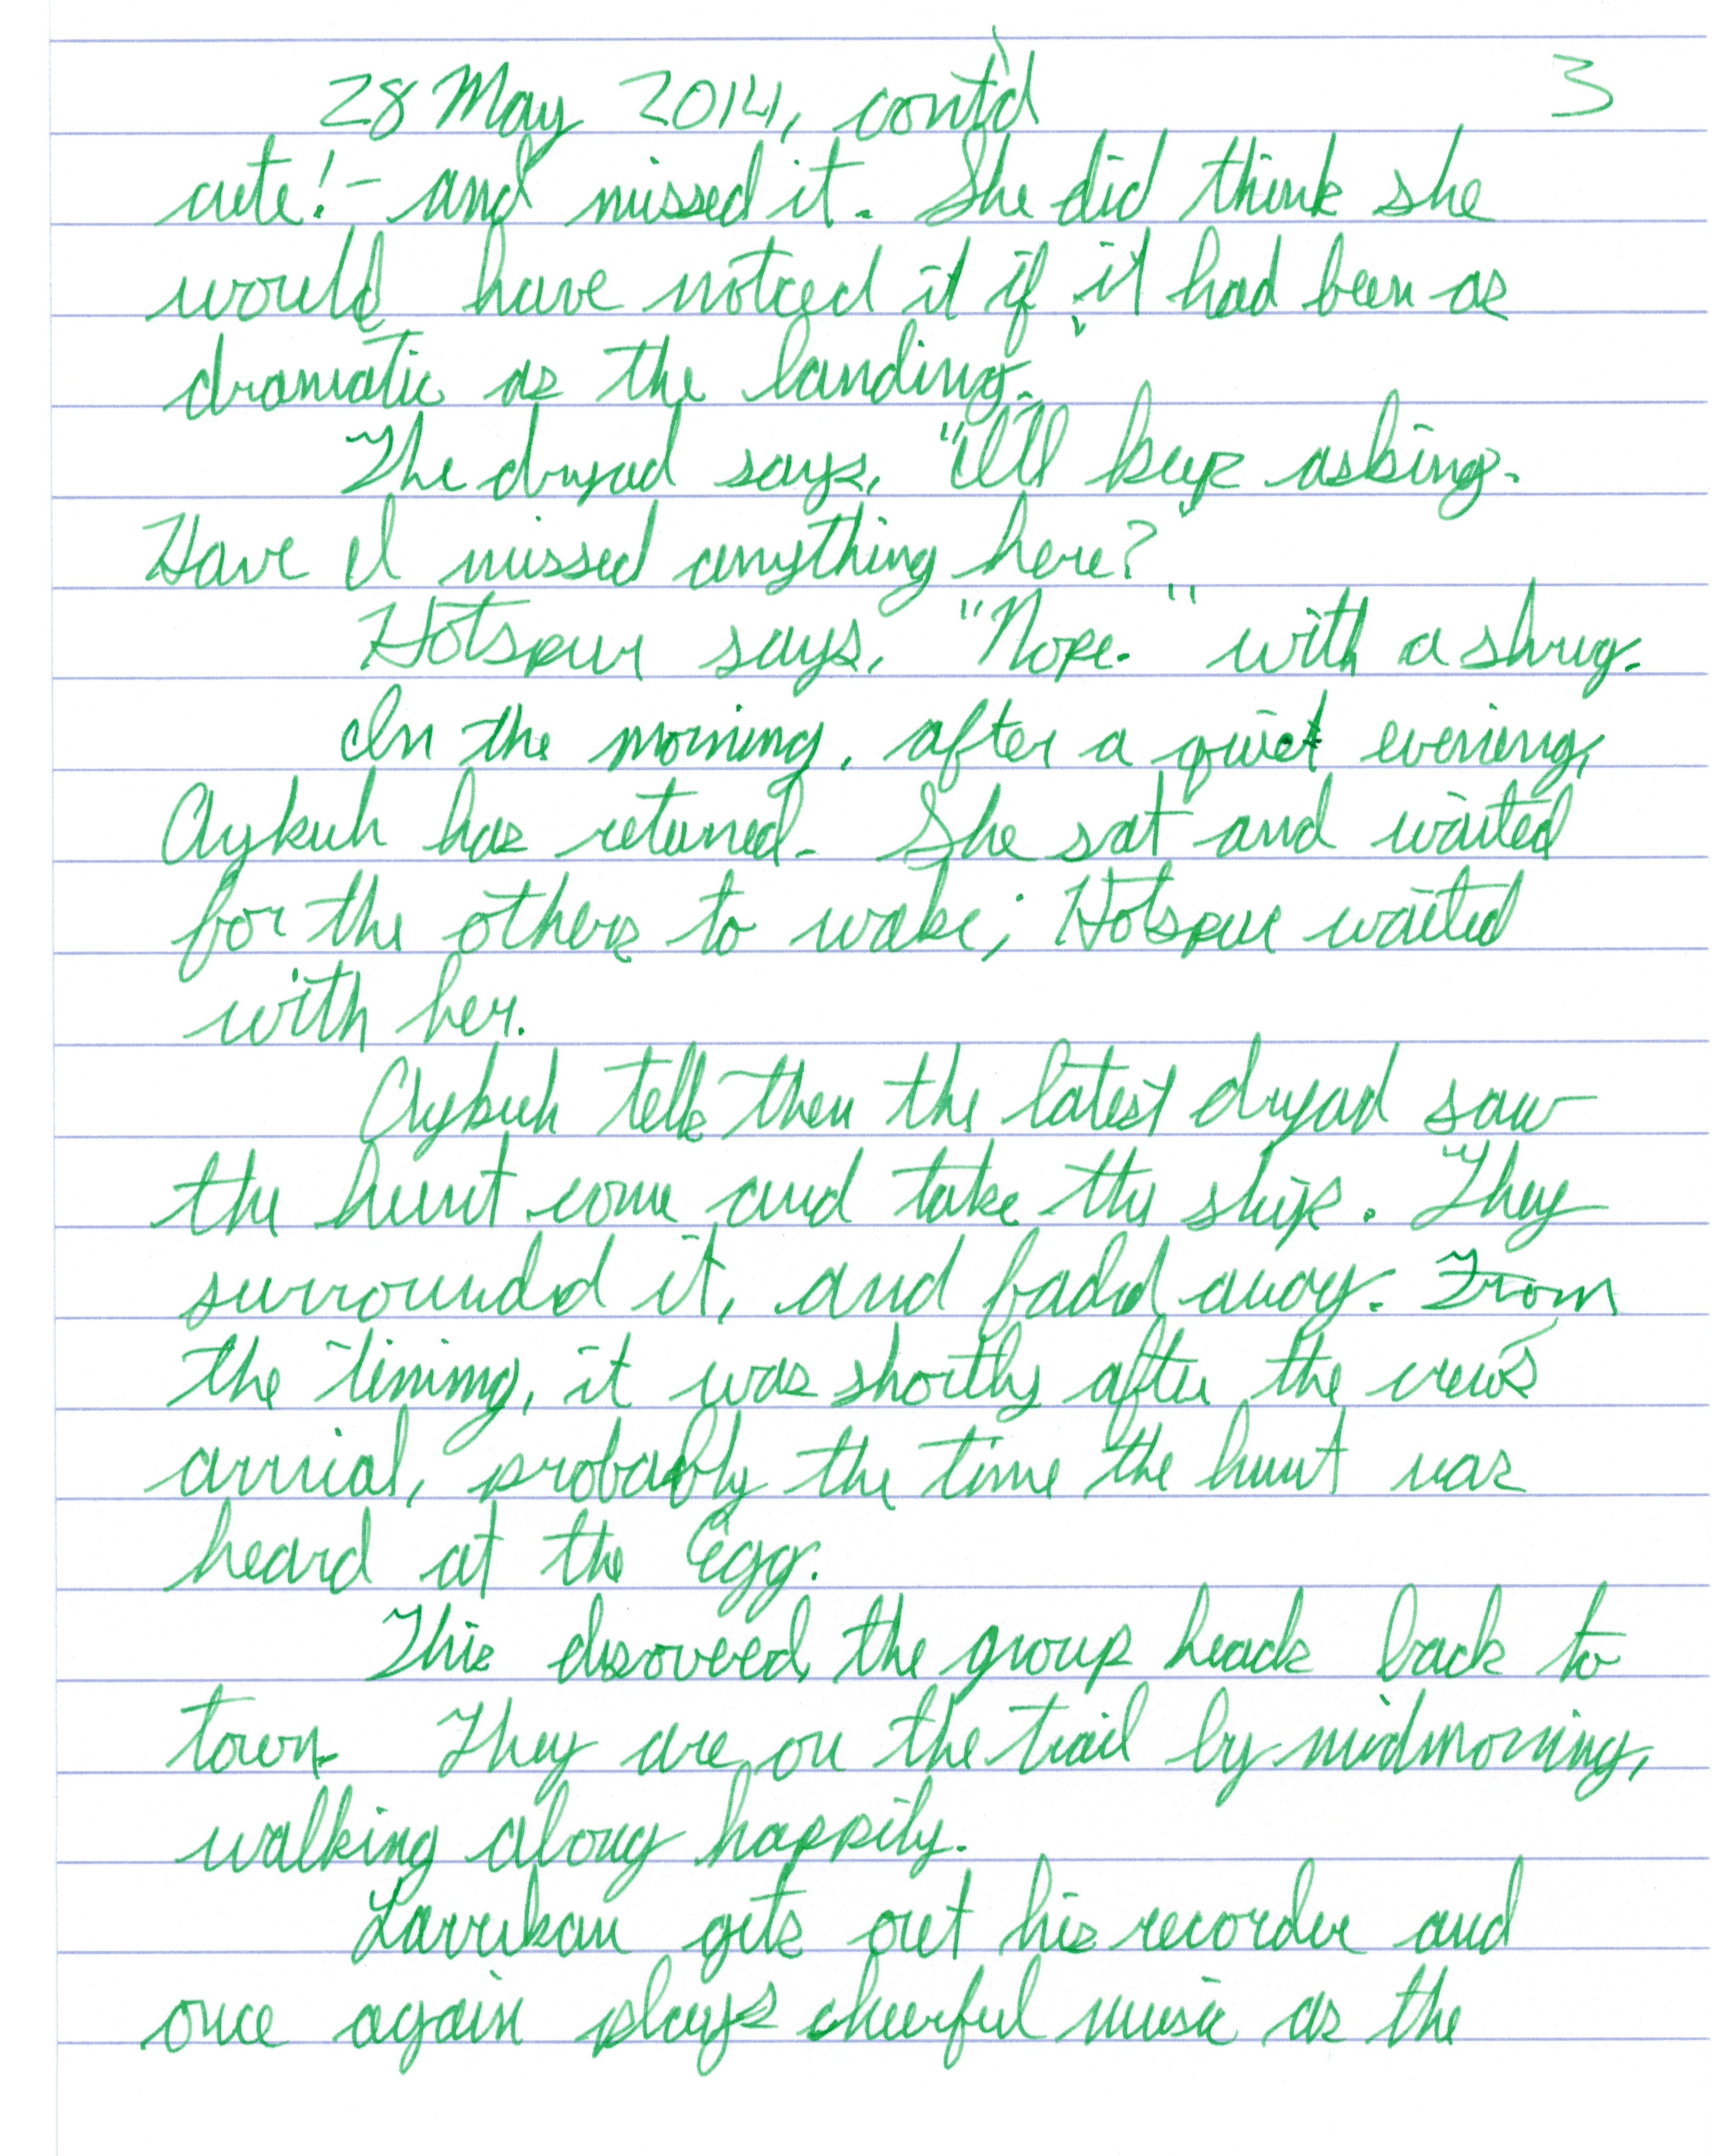 28 May 2014, cont'd 3
cute! - and missed it. She did think she
would have noticed it if it had been as
dramatic as the landing.
The dryad says, "I'll keep asking.
Have I missed anything here?"
Hotspur says, "Nope." with a shrug.
In the morning, after a quiet evening,
Aykuh has returned. She sat and waited
for the others to wake; Hotspur waited
with her.
Aykuh tells them the latest dryad saw
the hunt come and take the ship. They
surrounded it, and faded away. From
the timing, it was shortly after the crew's
arrival, probably the time the hunt was
heard at the Egg.
This discovered, the group heads back to
town. They are on the trail by midmorning,
walking along happily.
Larrikan gets out his recorder and
once again plays cheerful music as the